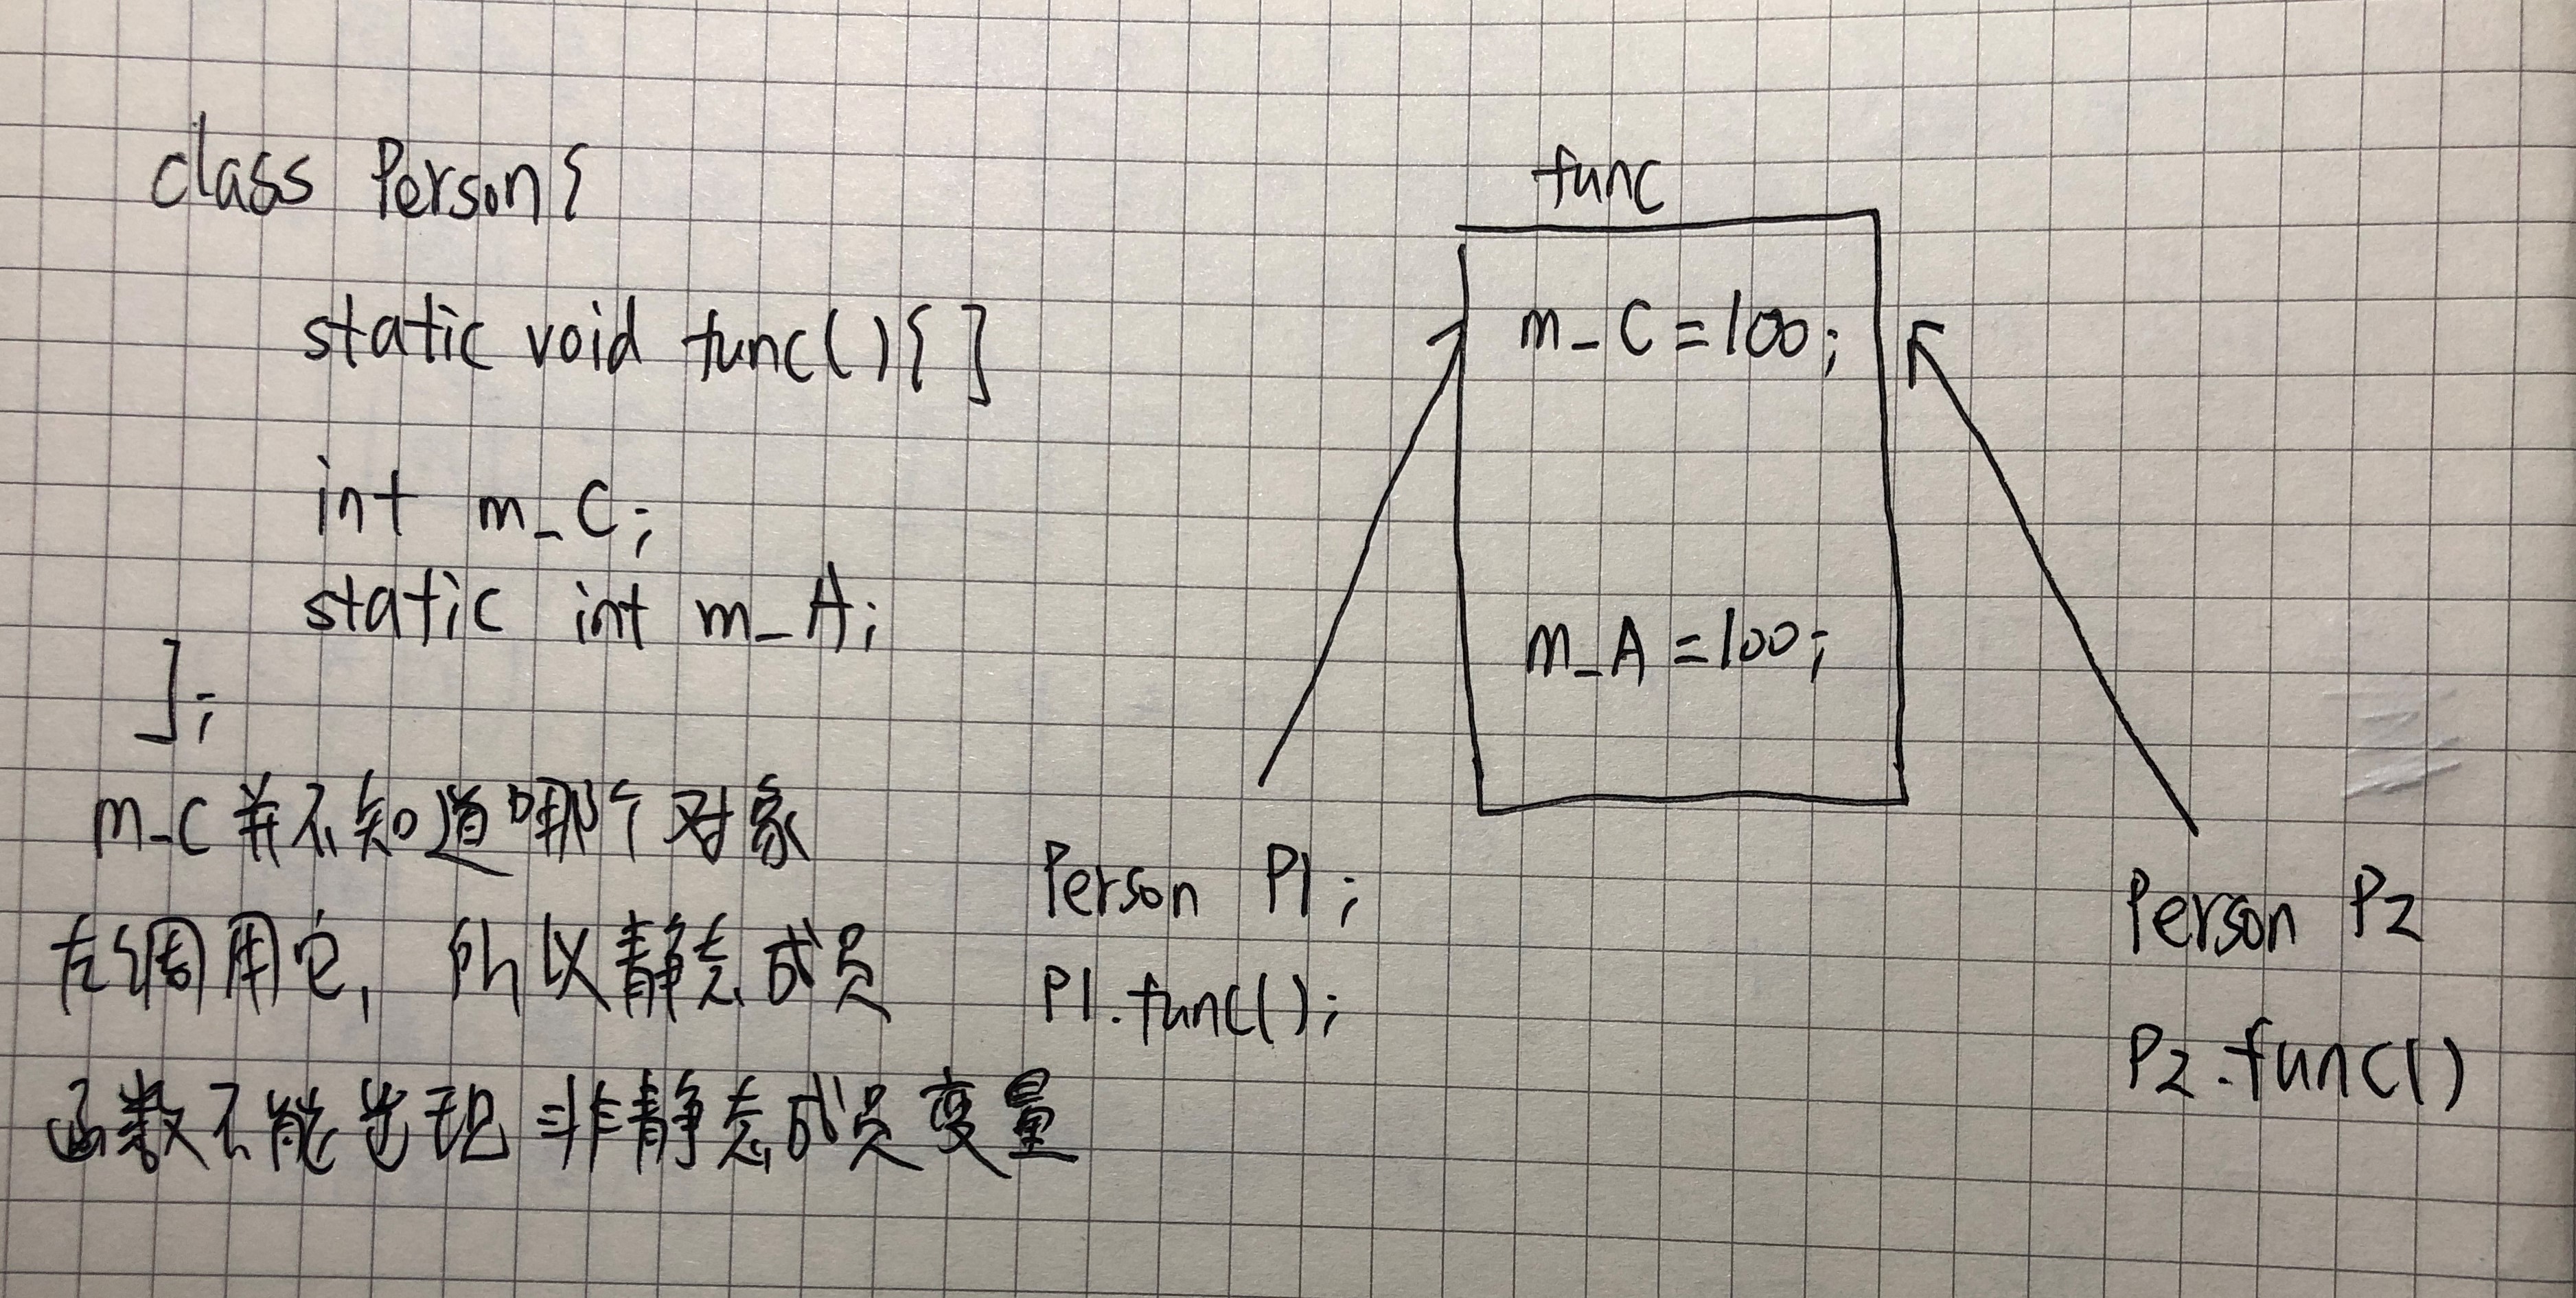 class Person{
static void func(){ }
int m_C;
static int m_A;
};
m_C并不知道哪个对象
在调用它, 所以静态成员
函数不能出现非静态成员变量
func
m_C=100;
m_A=100;
Person P1;
P1.func();
Person P2
P2.func()